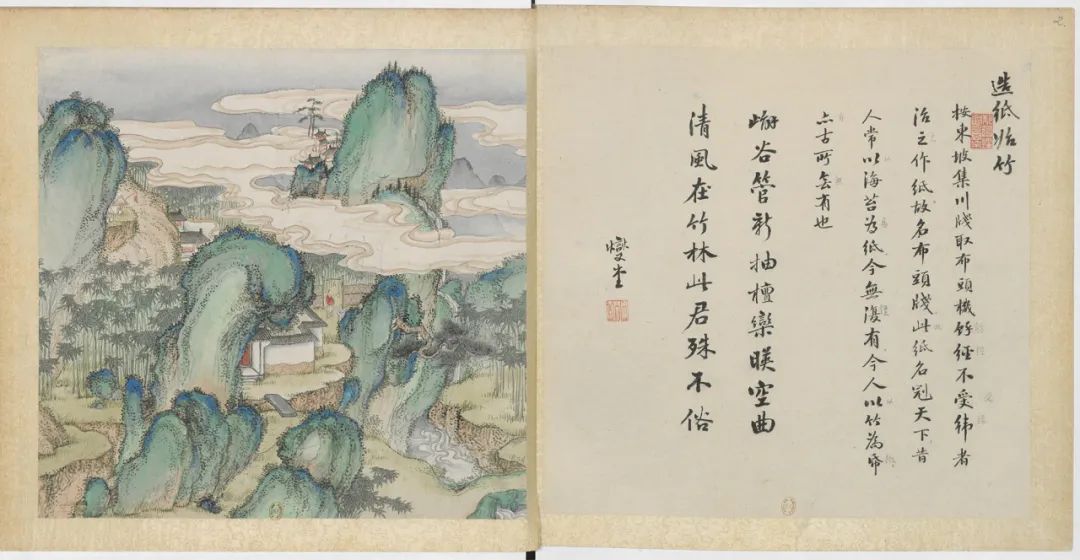 2.
造紙竹
按東坡集川牋取布頭機餘經不受緯者
治之作紙故名布頭牋此紙名冠天下昔
人常以海苔為紙今無復有今人以竹為帋
亦古所無有也
嶰谷管新抽檀欒暎空曲
清風在竹林此君殊不俗
燮堂